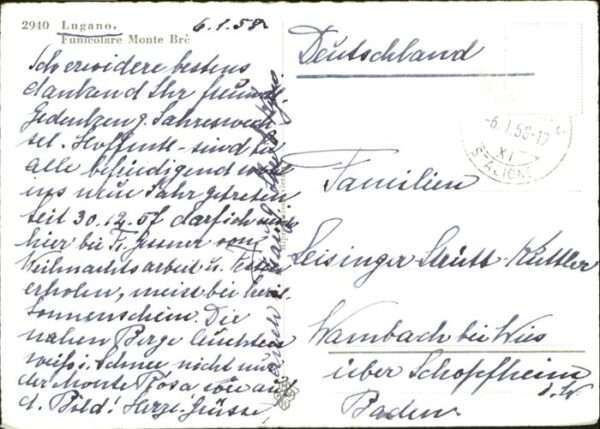 2940 Lugano.
Funicolare Monte Brè
6.1.58
Ich erwidere bestens
dankend Ihr freundl.
Gedenken z. Jahreswech-
sel. Hoffentl. sind Sie
alle befriedigend
ins neue Jahr getreten
Seit 30.12.57 darf ich
hier bei Fr. vom
Weihnachtsarbeit u.
erholen, meist bei
Sonnenschein. Die
nahen Berge leuchten
weiß i. Schnee nicht nur
der Monte Rosa wie auf
d. Bild! Herzl. Grüsse,
Deutschland
-6.1.58-12
XI
STAZIONE
Familien
Leisinger Strütt-Küttler
Wambach bei Wies
über Schopfheim
i. W
Baden